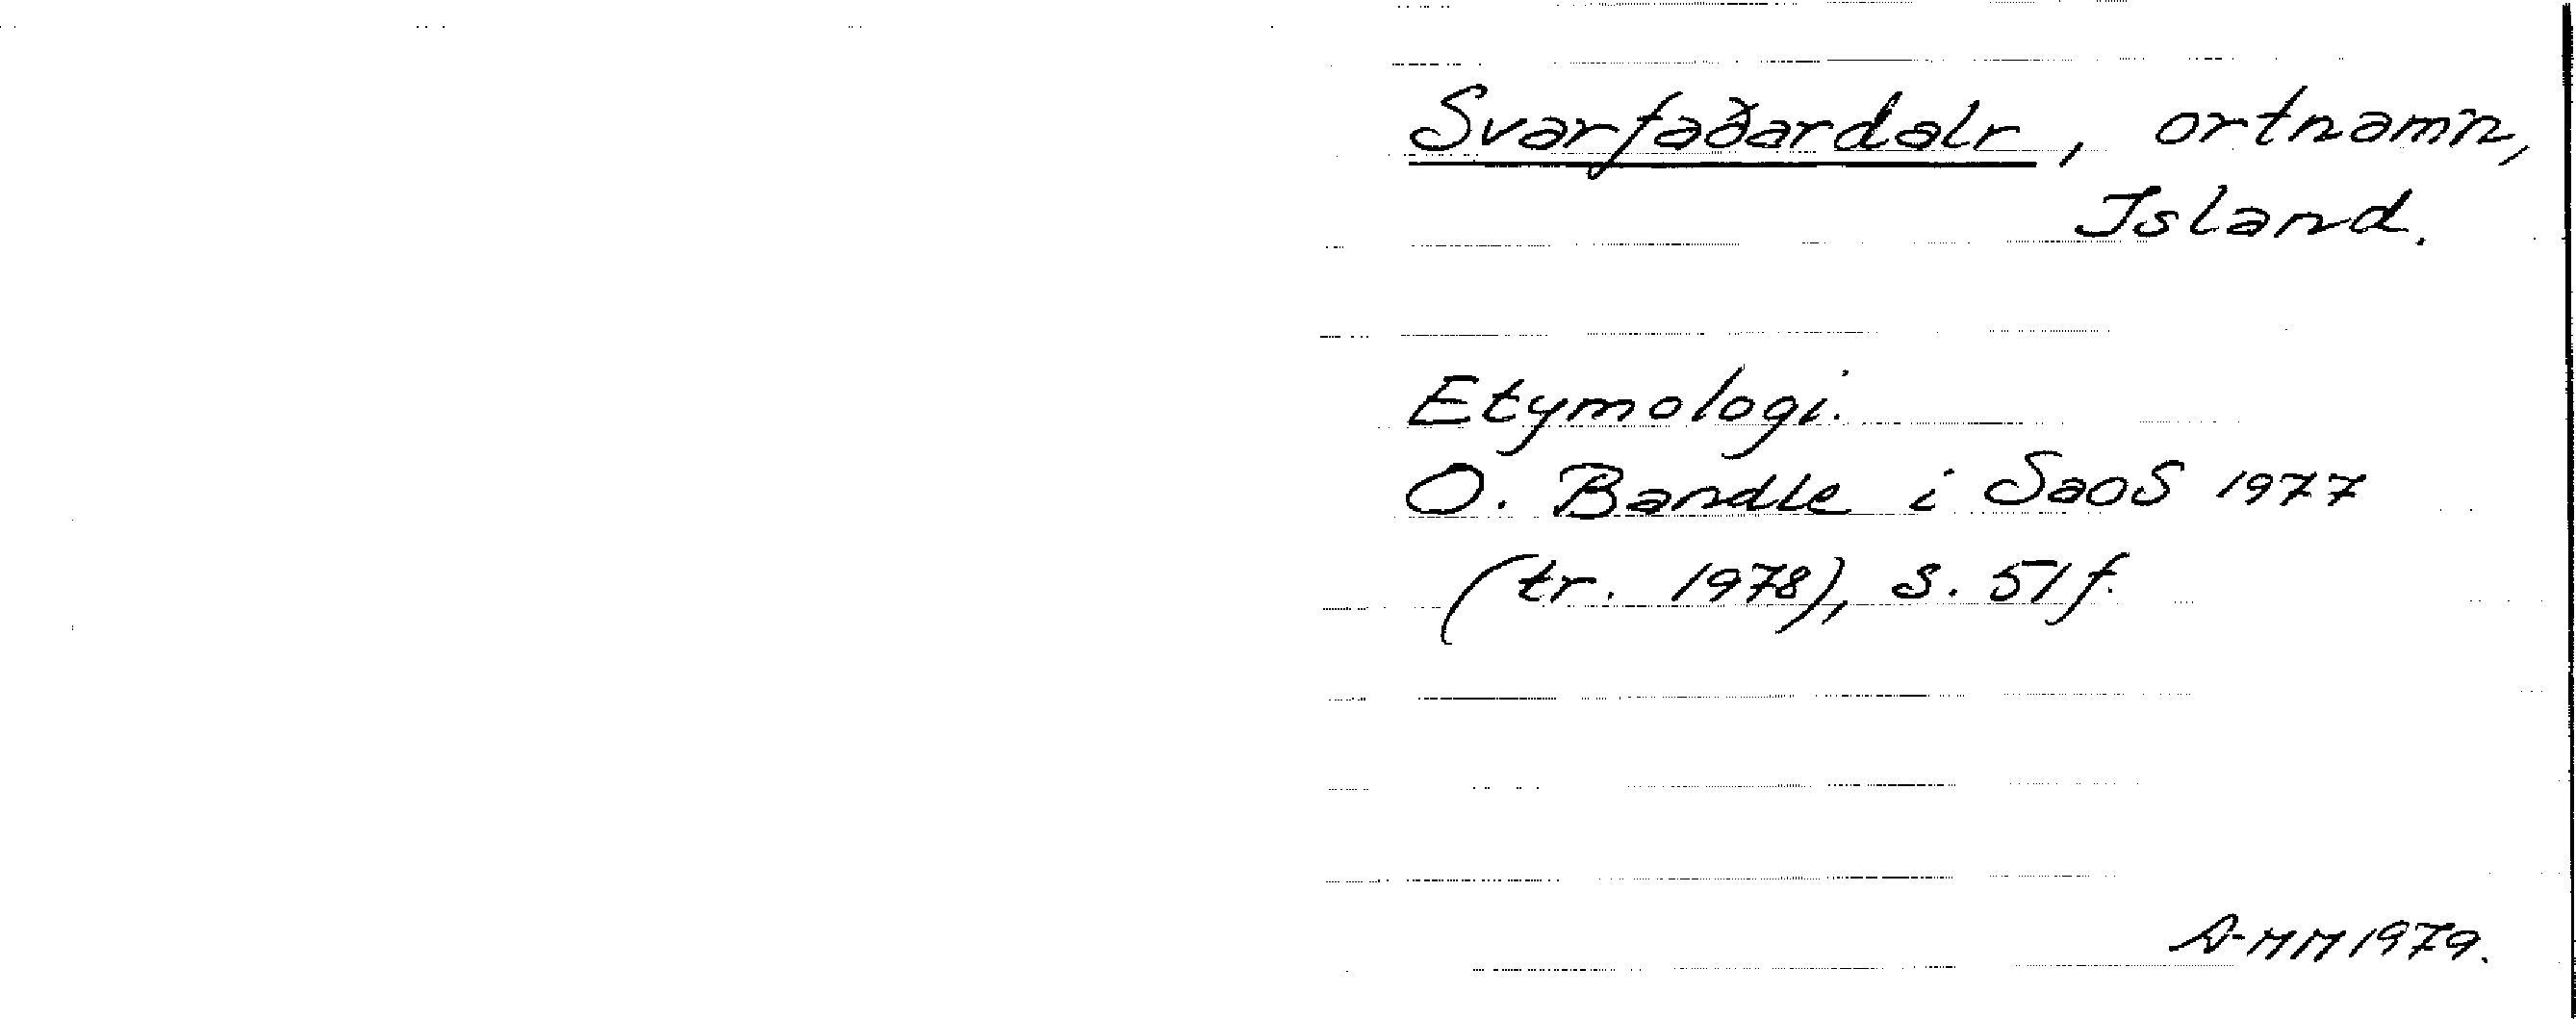 Svarfaðardalr, ortnamn,
Island.
Etymologi.
O. Bandle i SaoS 1977
(tr. 1978), s. 51 f.
A-MM 1979.